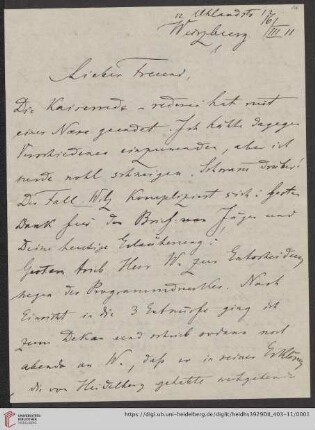 12 Uhlandstr
Würzburg 16/III 11
Lieber Freund,
Die Kaiserrede – rederei hat mit
einer Nase geendet. Ich hätte dagegen
Verschiedenes einzuwenden, aber ich
werde wohl schweigen. Schwamm drüber!
Der Fall Witz kompliziert sich: Besten
Dank für den Brief von Jäger und
Deine heutige Erläuterung:
Gestern trieb Herr W. zur Entscheidung
wegen des Programmdruckes. Nach
Einsicht in die 3 Entwürfe ging ich
zum Dekan und schrieb sodann noch
abends an W., daß er in seiner Erklärung
die von Heidelberg gehabte
UNIVERSITÄTS-
BIBLIOTHEK
HEIDELBERG
https://digi.ub.uni-heidelberg.de/diglit/heidhs3929D8_403-11/0001